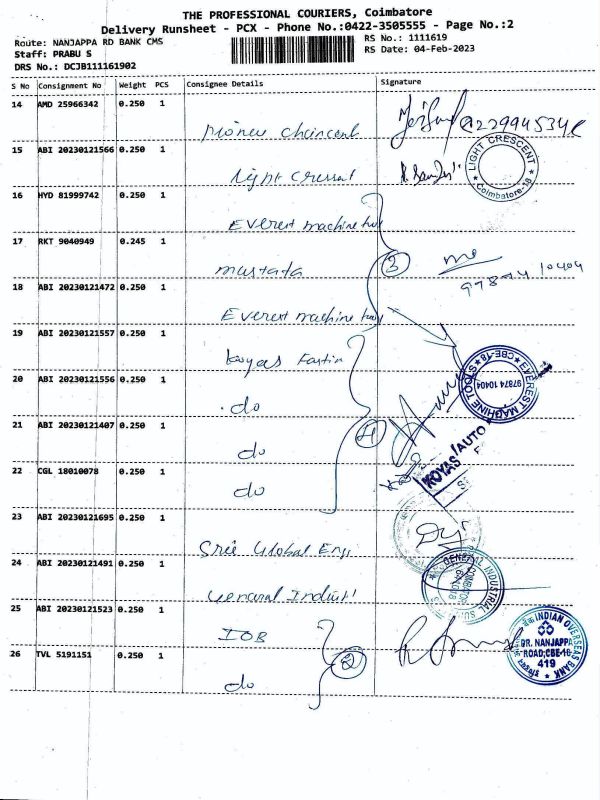 THE PROFESSIONAL COURIERS, Coimbatore
Delivery Runsheet - PCX - Phone No.:0422-3505555 - Page No.:2
Route: NANJAPPA RD BANK CMS
RS No.: 1111619
Staff: PRABU S
RS Date: 04-Feb-2023
DRS No.: DCJB111161902
S No Consignment No Weight PCS Consignee Details Signature
14 AMD 25966342 0.250 1
15 ABI 20230121566 0.250 1 Light Cressat
LIGHT CRESCENT
Coimbatore-18
16 HYD 81999742 0.250 1 Everest machine tool
17 RKT 9040949 0.245 1 mustafa
3
97874 10404
18 ABI 20230121472 0.250 1 Everest machine tool
19 ABI 20230121557 0.250 1 koyas
EVEREST MACHINE TOOLS CBE-18
97874 10404
20 ABI 20230121556 0.250 1 do
21 ABI 20230121407 0.250 1 do
4
KOYAS AUTO
22 CGL 18010078 0.250 1 do
23 ABI 20230121695 0.250 1 Sree Global Eng
24 ABI 20230121491 0.250 1 General Indust
GENERAL INDUSTRIAL
25 ABI 20230121523 0.250 1 IOB
2
INDIAN OVERSEAS BANK
DR. NANJAPPA
ROAD, CBE-18
419
26 TVL 5191151 0.250 1 do